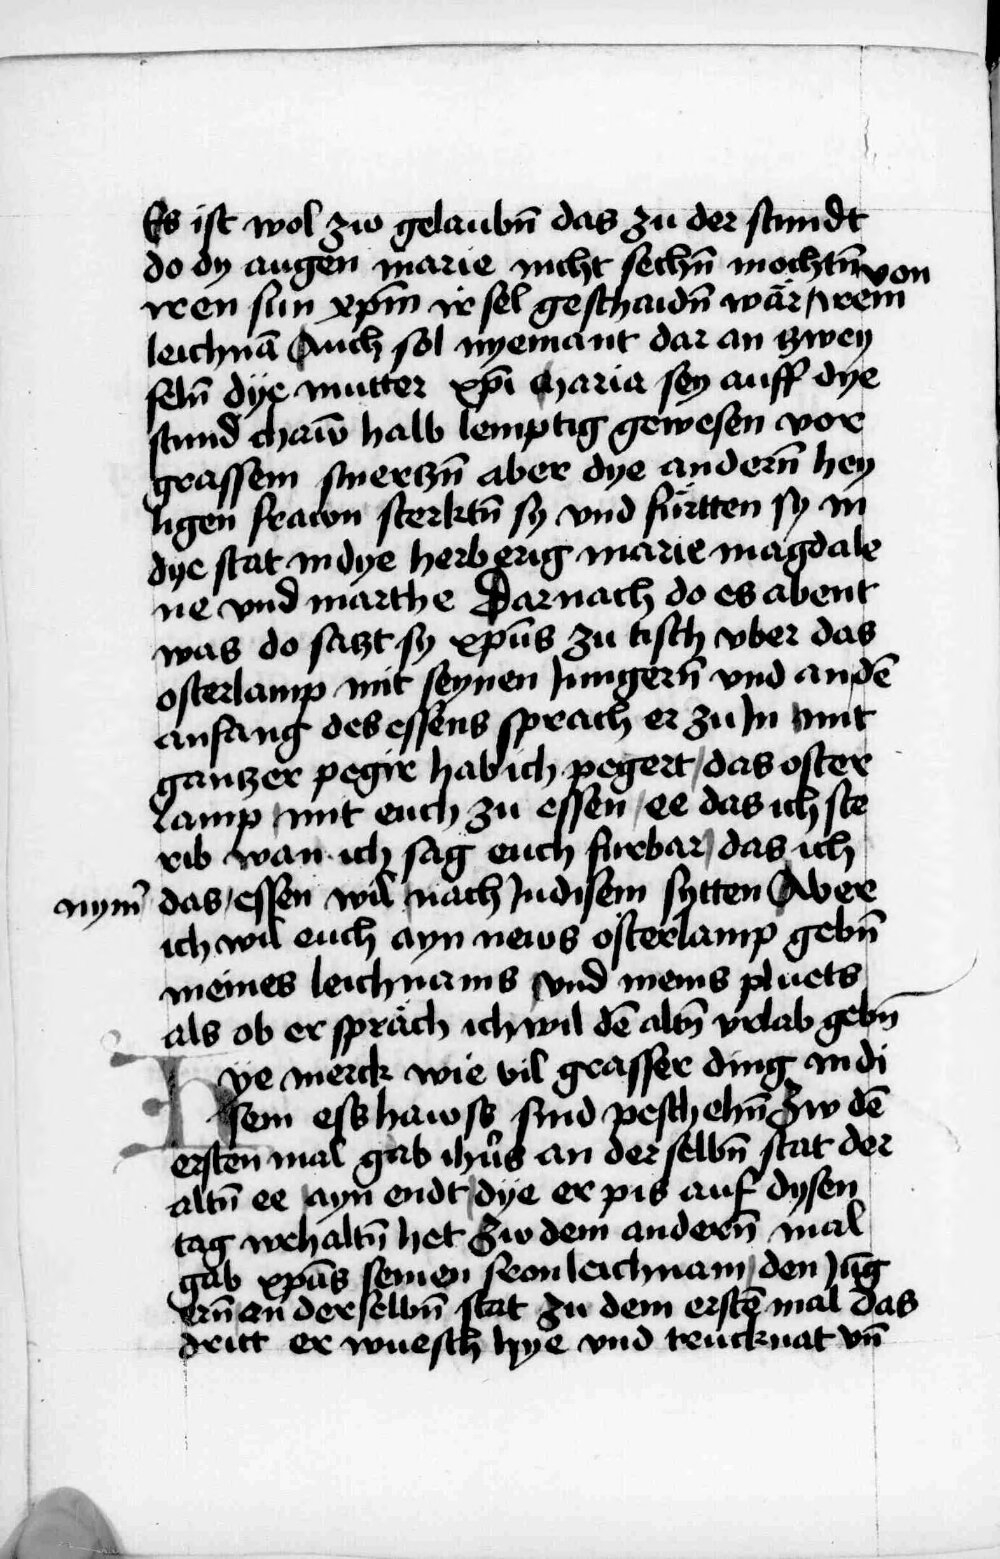 Es ist wol zw gelaubn̄ das zu der stundt
do dy augen marie nicht sechn̄ mochtn̄ von
iren sun xp̄m ir sel geschaidn̄ wär / irem
leichnā Auch sol nyemant dar an tzwey
feln̄ dye mutter xp̄i maria sey auff dye
stund chaw̄ halb lemptig gewesen vor
grassem smertzn̄ aber dye andern̄ hey
ligen frawn sterktn̄ sy vnd fürtten sy in
dye stat in dye herberig marie magdale
ne vnd marthe Darnach do es abent
was do satzt sy xp̄us zu tisch vber das
osterlamp mit seynen Jungern̄ vnd an dē
anfang des essens sprach er zu In mit
gantzer pegir hab ich pegert / das oster
lamp mit euch zu essen / ee das ich ste
rib wan ich sag euch furbar / das ich
nym̄ das / essen wil nach Judisem sytten Aber
ich wil euch ayn news osterlamp gebn̄
meines leichnams vnd meins pluets
als ob er spräch ich wil dē altn̄ vrlab gebn̄
Hye merck wie vil grasser ding in di
sem ess hawss sind peschehn̄ Zw dē
ersten mal gab ihūs an der selbn̄ stat der
altn̄ ee ayn endt / dye er pis auf dysen
tag wehaltn̄ het Zw dem andern̄ mal
gab xp̄us seinen fronleichnam / den Jūg
ern̄ an der selbn̄ stat zu dem erstē mal das
dritt er wuesch hye vnd trucknat vn̄